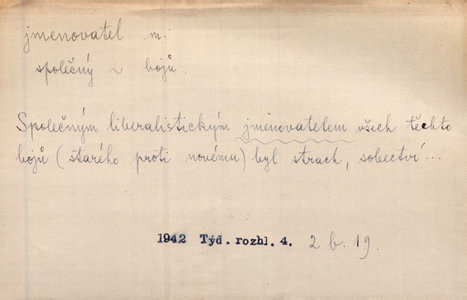 jmenovatel m.
společný ~ bojů.
Společným liberalistickým jmenovatelem všech těchto
bojů (starého proti novému) byl strach, sobectví...
1942 Týd. rozhl. 4. 2 b. 19.